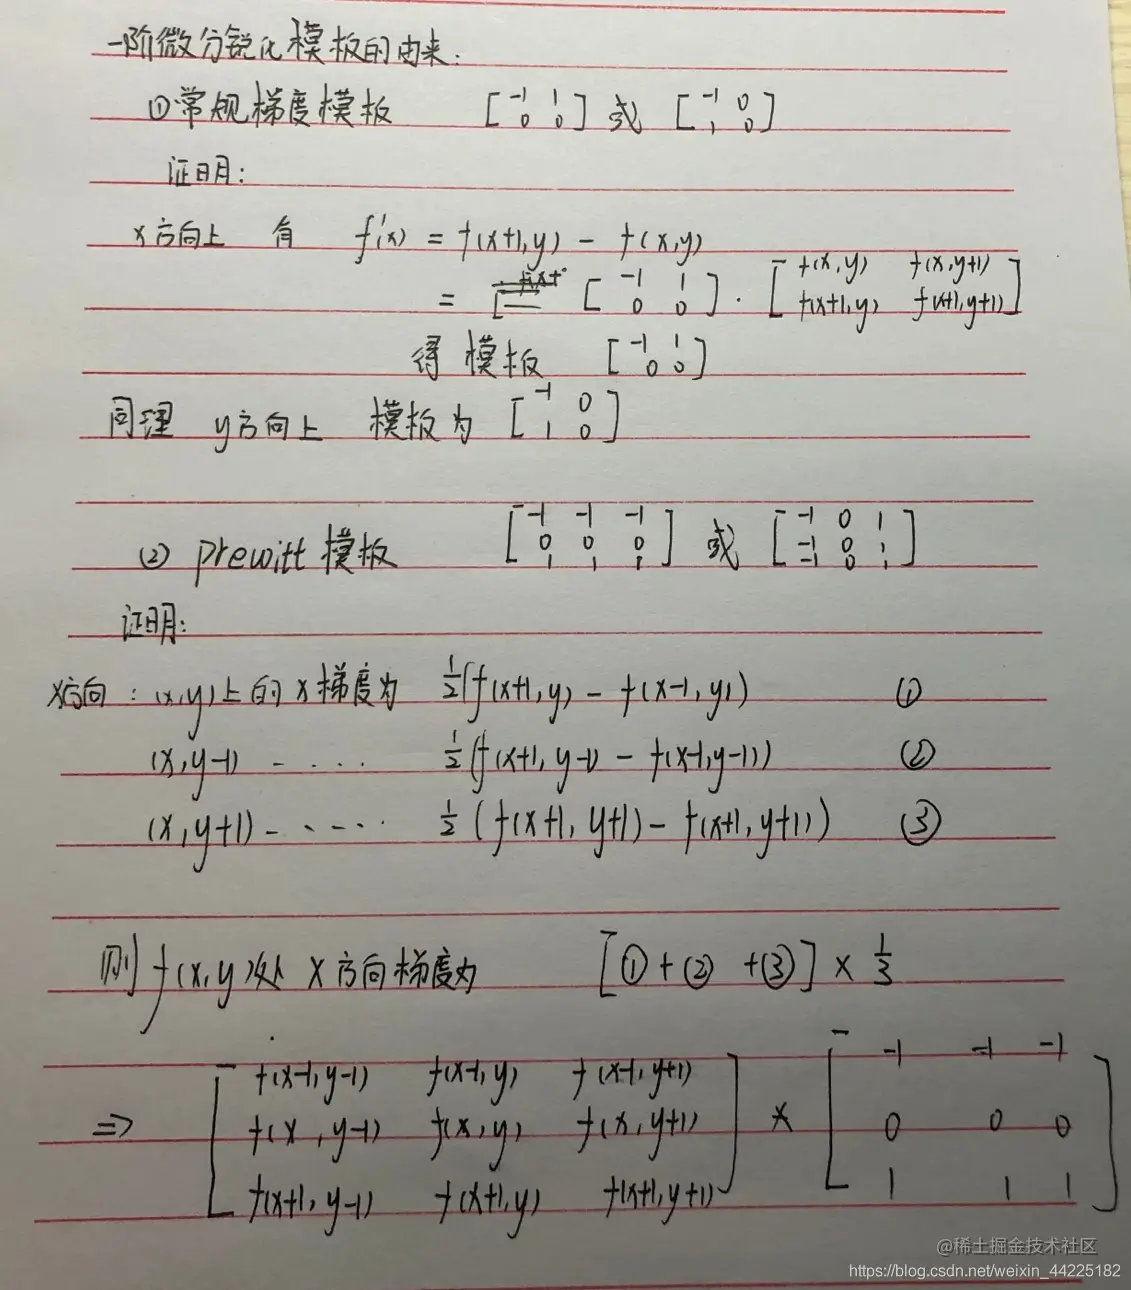 一阶微分锐化模板的由来:
①常规梯度模板 [-1 1 0 0] 或 [-1 0 1 0]
证明:
x方向上 有 f'(x) = f(x+1,y) - f(x,y)
= [-1 1 0 0] · [f(x,y) f(x,y+1) f(x+1,y) f(x+1,y+1)]
得 模板 [-1 1 0 0]
同理 y方向上 模板为 [-1 0 1 0]
(2) prewitt 模板 [-1 -1 -1 0 0 0 1 1 1] 或 [-1 0 1 -1 0 1 -1 0 1]
证明:
x方向: (x,y)上的x梯度为 1/2(f(x+1,y) - f(x-1,y)) ①
(x,y-1) - · · · · 1/2(f(x+1,y-1) - f(x-1,y-1)) ②
(x,y+1) - · · - · · 1/2(f(x+1,y+1) - f(x+1,y+1)) ③
则 f(x,y)处 x方向梯度为 [① + ② + ③] × 1/3
⇒ [f(x-1,y-1) f(x-1,y) f(x-1,y+1)
f(x,y-1) f(x,y) f(x,y+1)
f(x+1,y-1) f(x+1,y) f(x+1,y+1)] × [-1 -1 -1
0 0 0
1 1 1]
@稀土掘金技术社区
https://blog.csdn.net/weixin_44225182